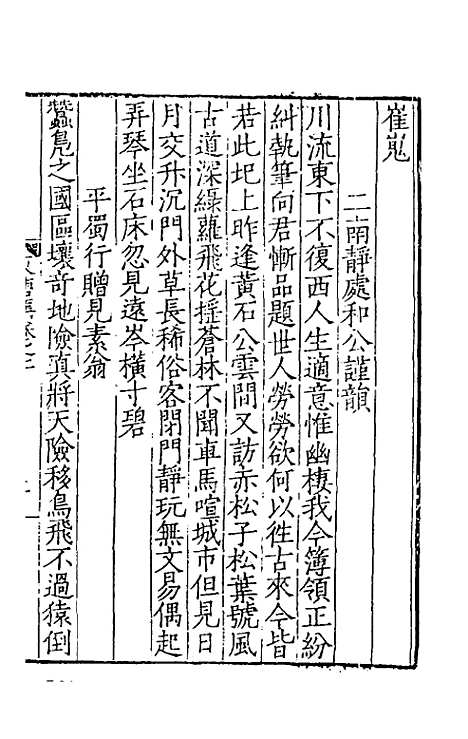 崔嵬
二南靜處和公謹韻
川流東下不復西人生適意惟幽棲我今簿領正紛
糾執筆向君慚品題世人勞勞欲何以徃古來今皆
若此圯上昨逢黃石公雲間又訪赤松子松葉號風
古道深綠蘿飛花揺蒼林不聞車馬喧城市但見日
月交升沉門外草長稀俗客閉門靜玩無文易偶起
弄琴坐石床忽見遠岑橫寸碧
平蜀行贈見素翁
蠶鳬之國區壤竒地險真將天險移鳥飛不過猿倒